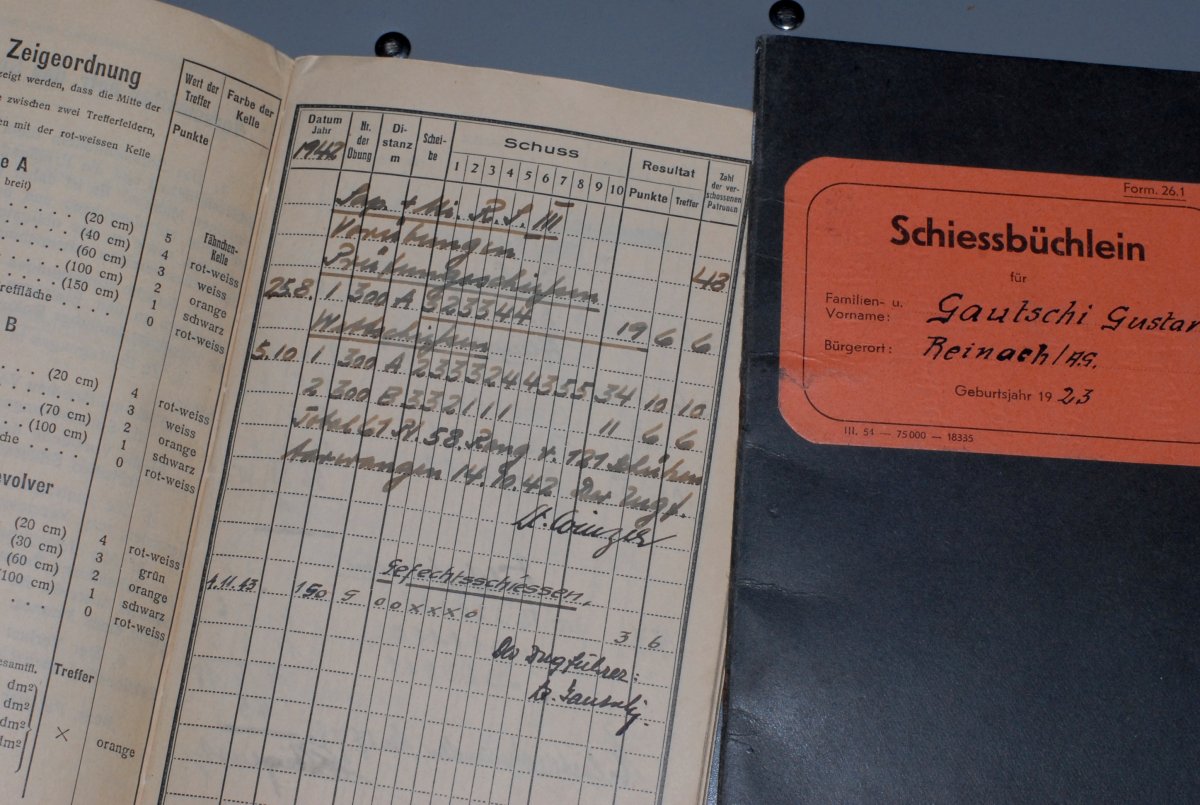 Zeigeordnung
zeigt werden, dass die Mitte der
e zwischen zwei Trefferfeldern,
en mit der rot-weissen Kelle
Wert der Treffer
Farbe der Kelle
Punkte
e A
breit)
(20 cm) 5 Fähnchen-Kelle
(40 cm) 4 rot-weiss
(60 cm) 3 weiss
(100 cm) 2 orange
(150 cm) 1 schwarz
reffläche 0 rot-weiss
B
(20 cm) 4 rot-weiss
3 weiss
(70 cm) 2 orange
(100 cm) 1 schwarz
che 0 rot-weiss
evolver
(20 cm) 4 rot-weiss
(30 cm) 3 grün
(60 cm) 2 orange
(100 cm) 1 schwarz
0 rot-weiss
esamtfl. Treffer
dm²
dm²
dm²
dm²
X orange
Datum Jahr 1942
Nr. der Übung
Distanz m
Scheibe
Schuss
1 2 3 4 5 6 7 8 9 10
Resultat
Punkte Treffer
Zahl der verschossenen Patronen
Sap. + Mi. R.S. III
Vorübungen 48
Prüfungsschiessen
25.8. 1 300 A 323344 19 6 6
Wettschiessen
5.10 1. 300 A 2333244355 34 10 10
2 300 B 332111 11 6 6
Total 61 P. 58. Rang v. 181 Schützen
Aarwangen 14.10.42 Der Zugf.
Gefechtsschiessen.
4.11.43 150 g 00XXX0 3 6
Der Zugführer:
Form. 26.1
Schiessbüchlein
für
Familien- u. Vorname: Gautschi Gustav
Bürgerort: Reinach/AG.
Geburtsjahr 1923
III. 51 — 75000 — 18335